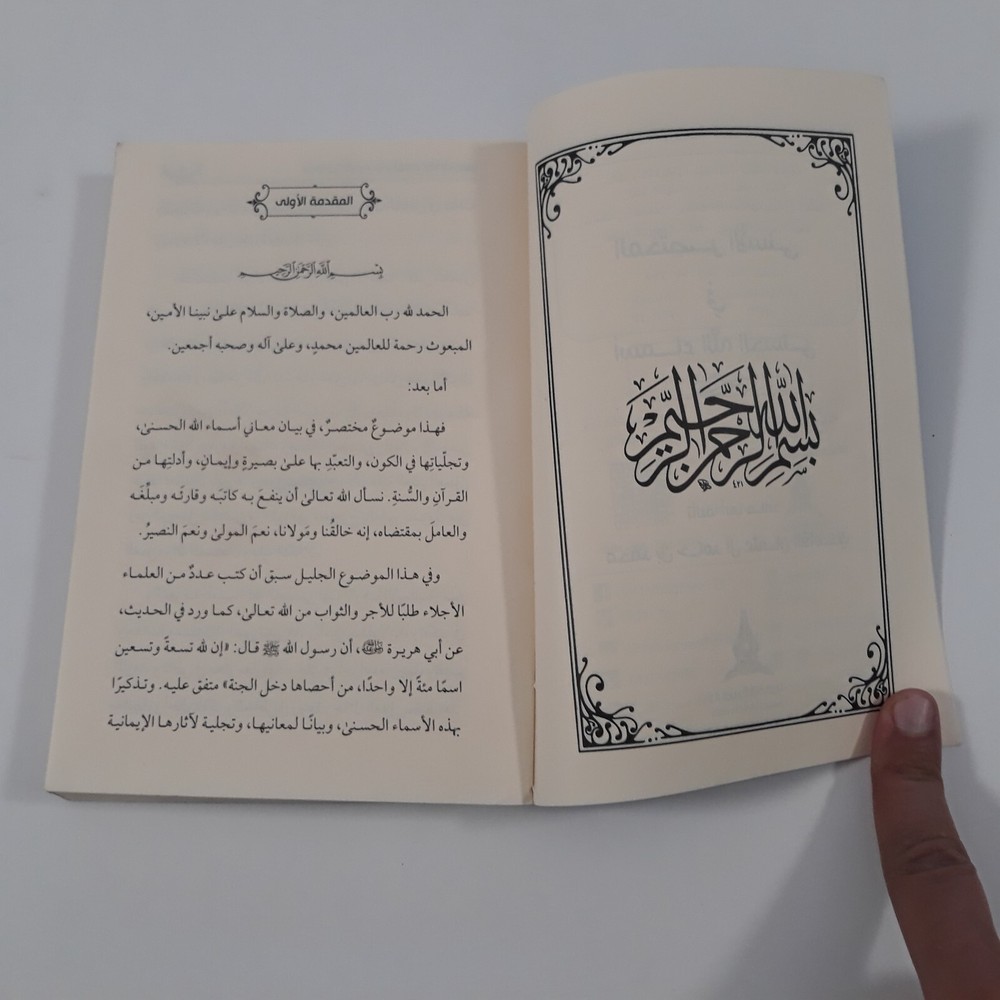 بسم الله الرحمن الرحيم
٤٢١
المقدمة الأولى
بسم الله الرحمن الرحيم
الحمد لله رب العالمين، والصلاة والسلام علىٰ نبينا الأمين،
المبعوث رحمة للعالمين محمدٍ، وعلىٰ آله وصحبه أجمعين.
أما بعد:
فهذا موضوعٌ مختصرٌ، في بيان معاني أسماء الله الحسنىٰ،
وتجلّياتِها في الكون، والتعبّدِ بها علىٰ بصيرةٍ وإيمانٍ، وأدلتِها من
القرآنِ والسُّنةِ. نسأل الله تعالىٰ أن ينفعَ به كاتبَه وقارئَه ومبلِّغَه
والعاملَ بمقتضاه، إنه خالقُنا ومَولانا، نعمَ المولىٰ ونعمَ النصيرُ.
وفي هذا الموضوع الجليل سبق أن كتب عددٌ من العلماء
الأجلاء طلبًا للأجر والثواب من الله تعالىٰ، كما ورد في الحديث،
عن أبي هريرة رضي الله عنه، أن رسول الله ﷺ قال: «إن لله تسعةً وتسعين
اسمًا مئةً إلا واحدًا، من أحصاها دخل الجنة» متفق عليه. وتذكيرًا
بهذه الأسماء الحسنىٰ، وبيانًا لمعانيها، وتجلية لآثارها الإيمانية